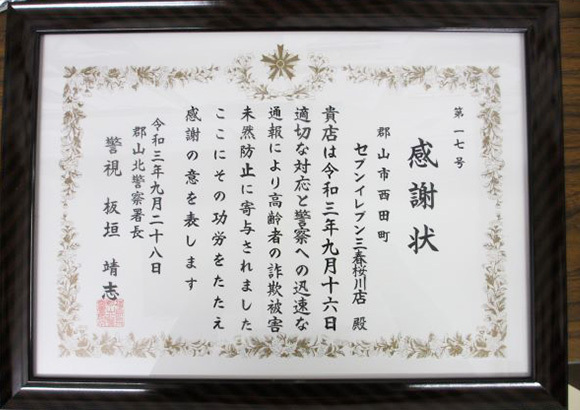 第一七号
感謝状
郡山市西田町
セブンイレブン三春桜川店 殿
貴店は令和三年九月十六日
適切な対応と警察への迅速な
通報により高齢者の詐欺被害
未然防止に寄与されました
ここにその功労をたたえ
感謝の意を表します
令和三年九月二十八日
郡山北警察署長
警視 板垣 靖志